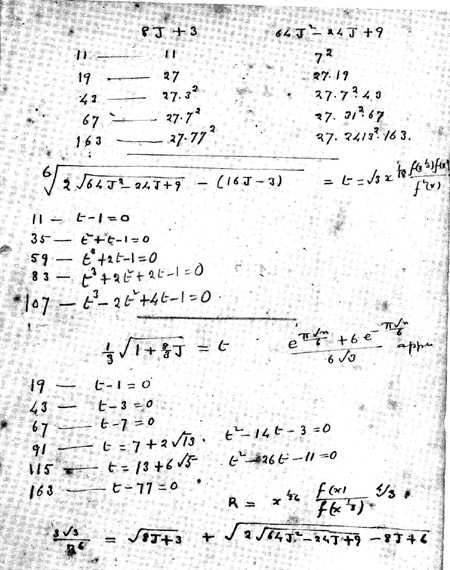 8J + 3 64J² − 24J + 9
11 — 11 7²
19 — 27 27.19
43 — 27.3² 27.7².43
67 — 27.7² 27.31².67
163 — 27.77² 27.2413².163.
⁶√(2√(64J² − 24J + 9) − (16J − 3)) = t = √3 x
11 — t − 1 = 0
35 — t² + t − 1 = 0
59 — + 2t − 1 = 0
83 — t³ + 2t² + 2t − 1 = 0
107 — t³ − 2t² + 4t − 1 = 0
1/3 √(1 + 8/3 J) = t (e^(π√n/6) + 6e^(−π√n/6))/(6√3)
19 — t − 1 = 0
43 — t − 3 = 0
67 — t − 7 = 0
91 — t = 7 + 2√13. t² − 14t − 3 = 0
115 — t = 13 + 6√5 t² − 26t − 11 = 0
163 — t − 77 = 0
R = x^(1/36) f(x)/f(x^(1/3))
3√3/R⁶ = √(8J + 3) + √(2√(64J² − 24J + 9) − 8J + 6)